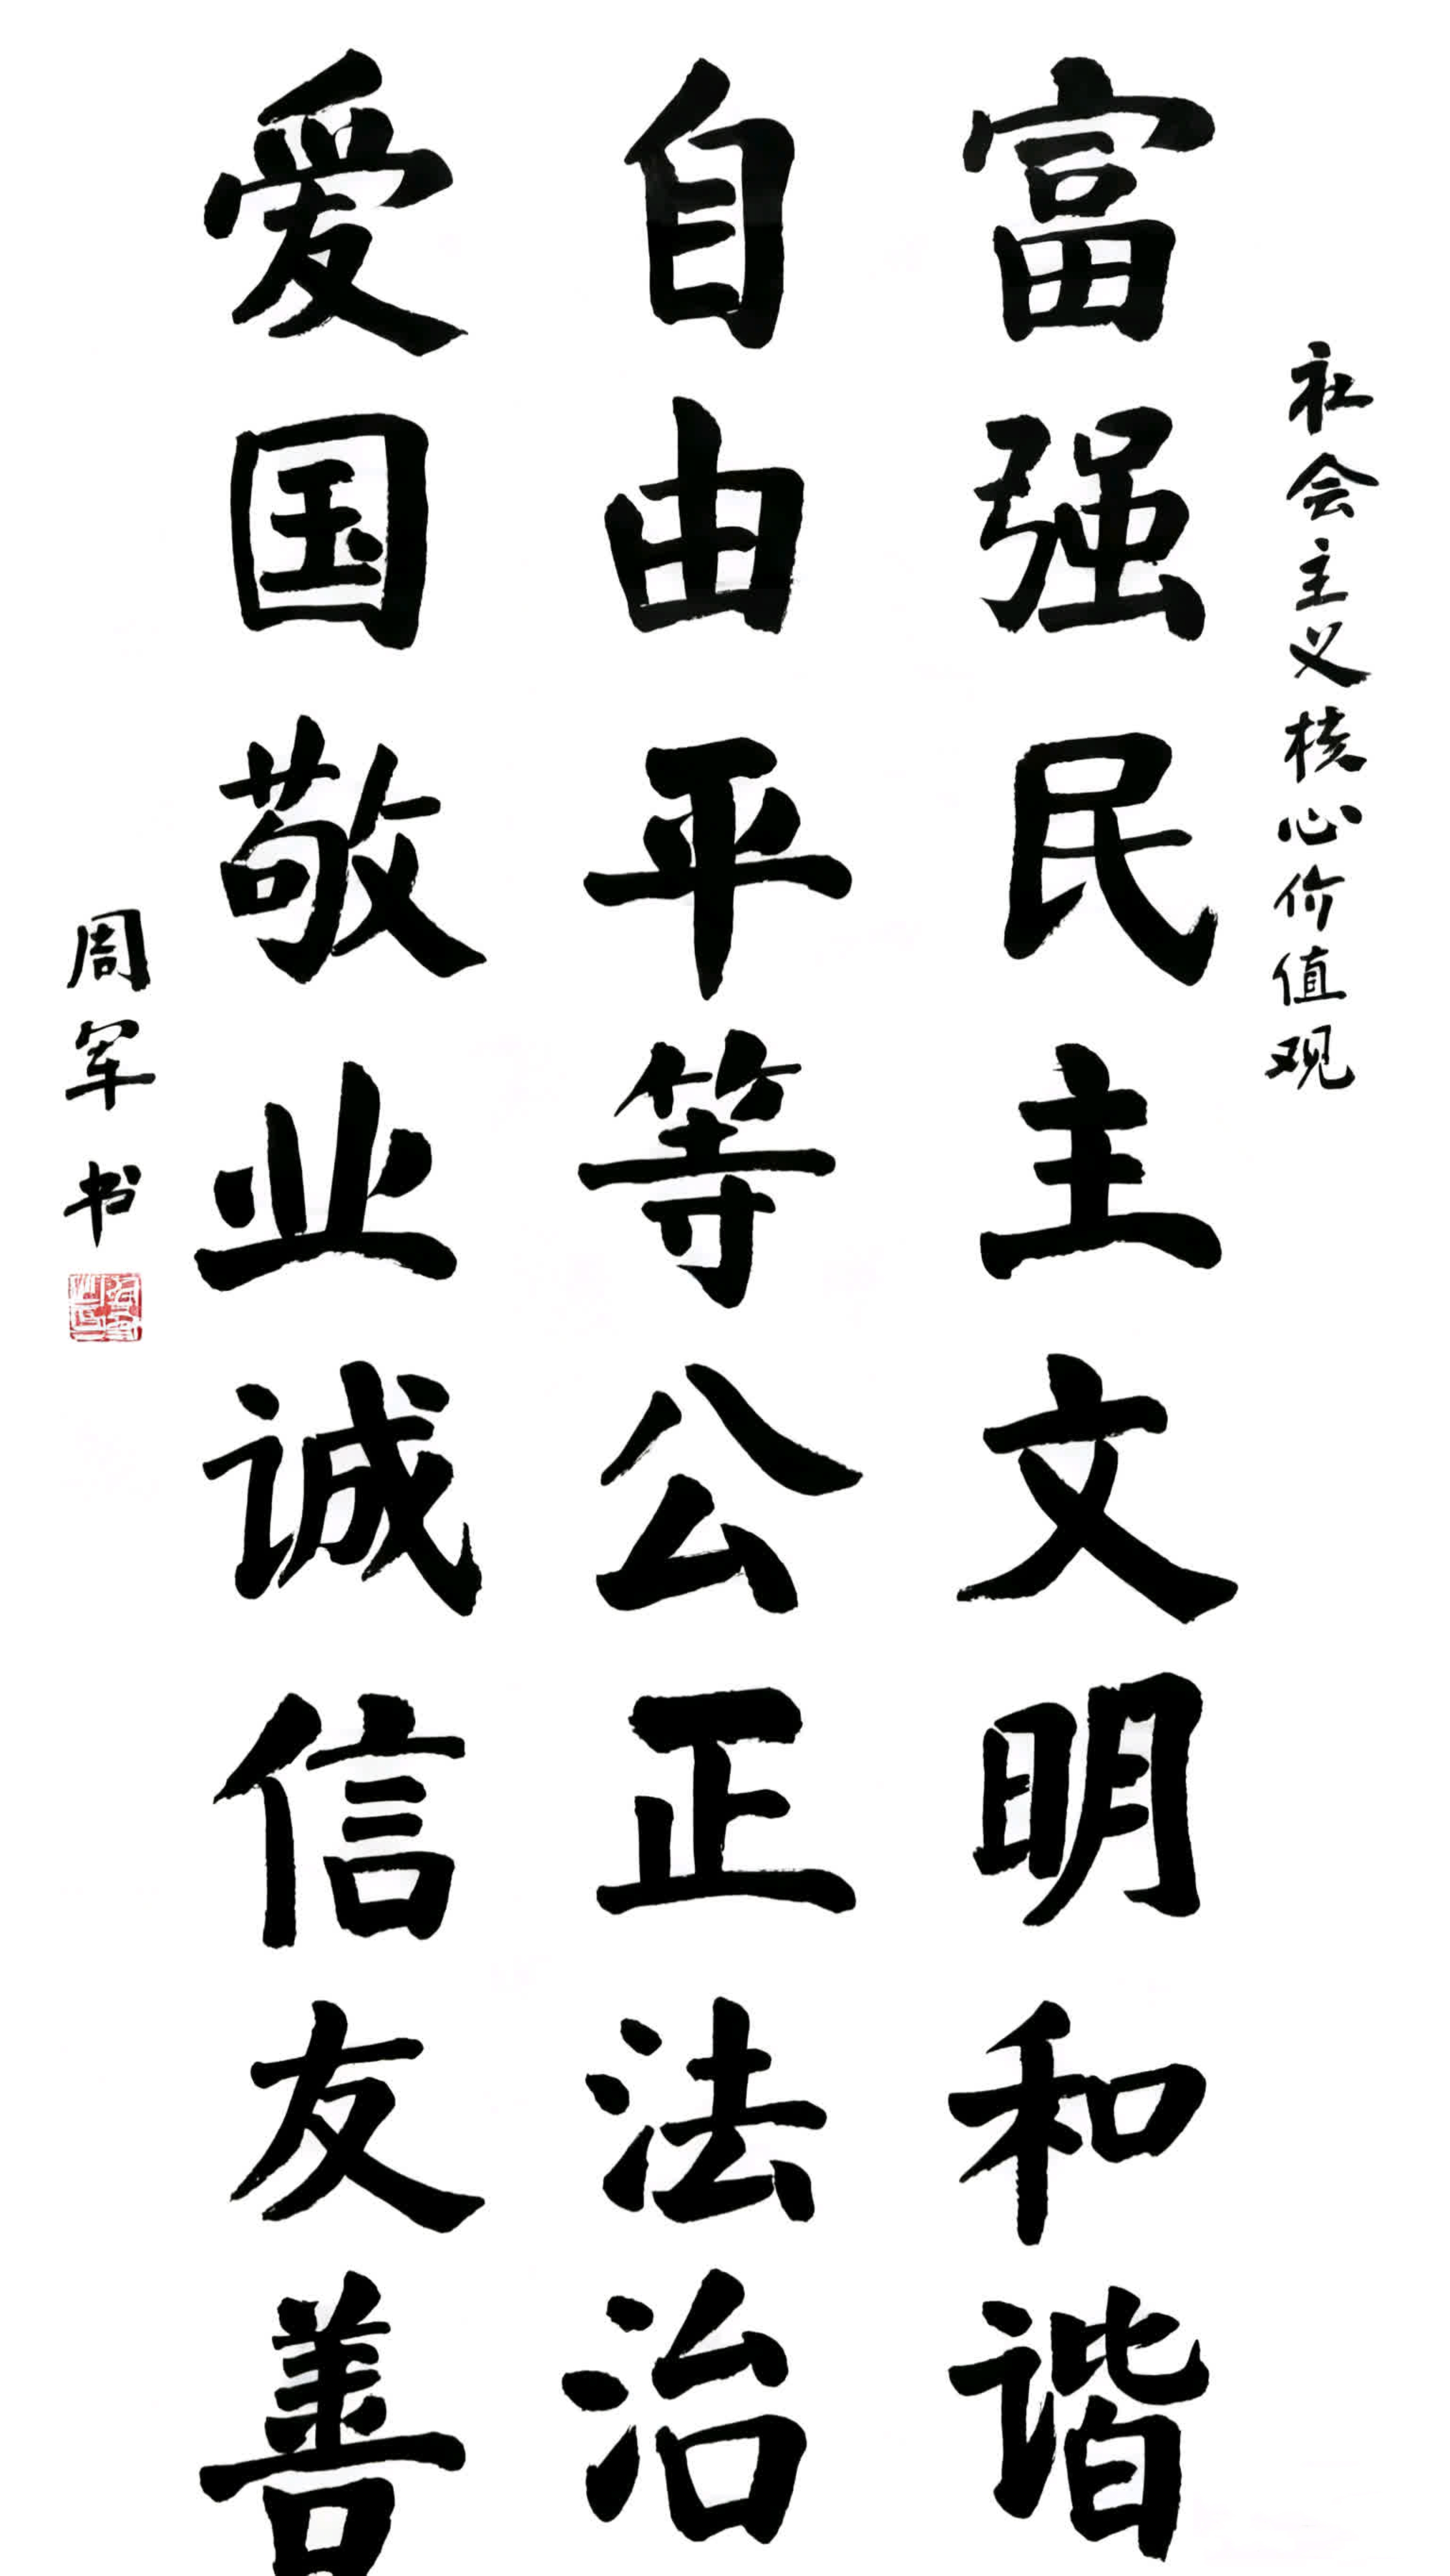 社会主义核心价值观
富强民主文明和谐
自由平等公正法治
爱国敬业诚信友善
周军书